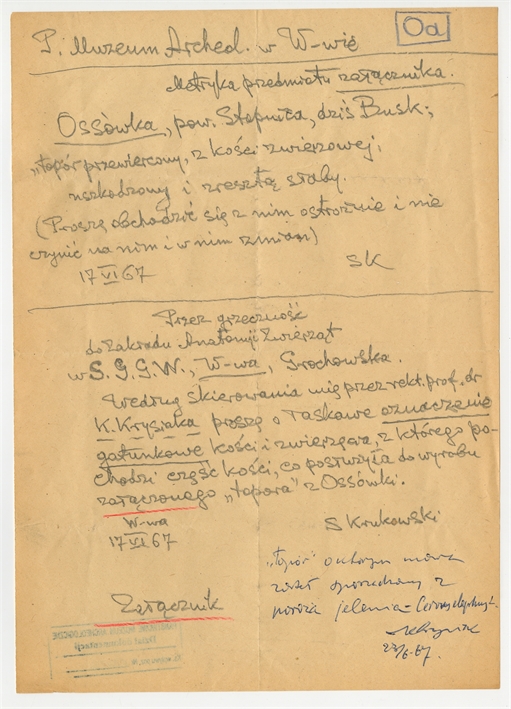 Oa
P. Muzeum Archeol. w W-wie
Metryka przedmiotu załącznika.
Ossówka, pow. Stopnica, dziś Busk;
"topór przewiercony, z kości zwierzęcej;
uszkodzony i zresztą słaby.
(Proszę obchodzić się z nim ostrożnie i nie
czynić na nim i w nim zmian)
17 VI 67
SK
Przez grzeczność
do Zakładu Anatomji Zwierząt
w S.G.G.W., W-wa, Grochowska.
Według skierowania mię przez rekt. prof. dr
K. Krysiaka proszę o łaskawe oznaczenie
gatunkowe kości i zwierzęcia, z którego po-
chodzi część kości, co posłużyła do wyrobu
załączonego "topora" z Ossówki.
W-wa
17 VI 67
S Krukowski
"topór" o którym mowa
został sporządzony z
poroża jelenia - Cervus elaphus L.
KKrysiak
27/6.67.
Załącznik
PAŃSTWOWE MUZEUM ARCHEOLOGICZNE
Dział dokumentacji